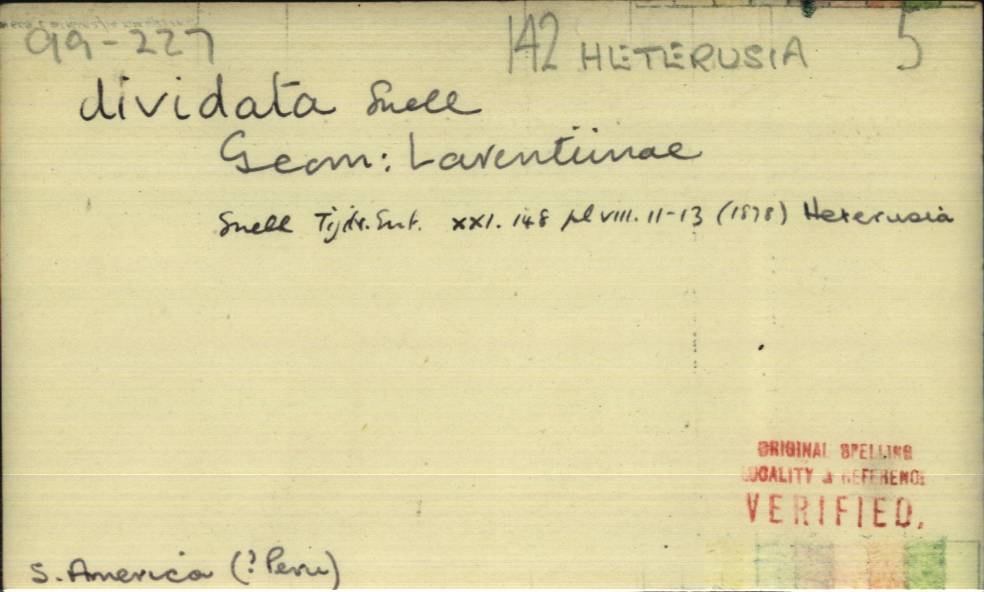 99-227 142 HETERUSIA 5
dividata Snell
Geom: Larentiinae
Snell Tijdr. Ent. XXI. 148 pl VIII. 11-13 (1878) Heterusia
ORIGINAL SPELLING
LOCALITY & REFERENCE
VERIFIED.
S. America (? Peru)